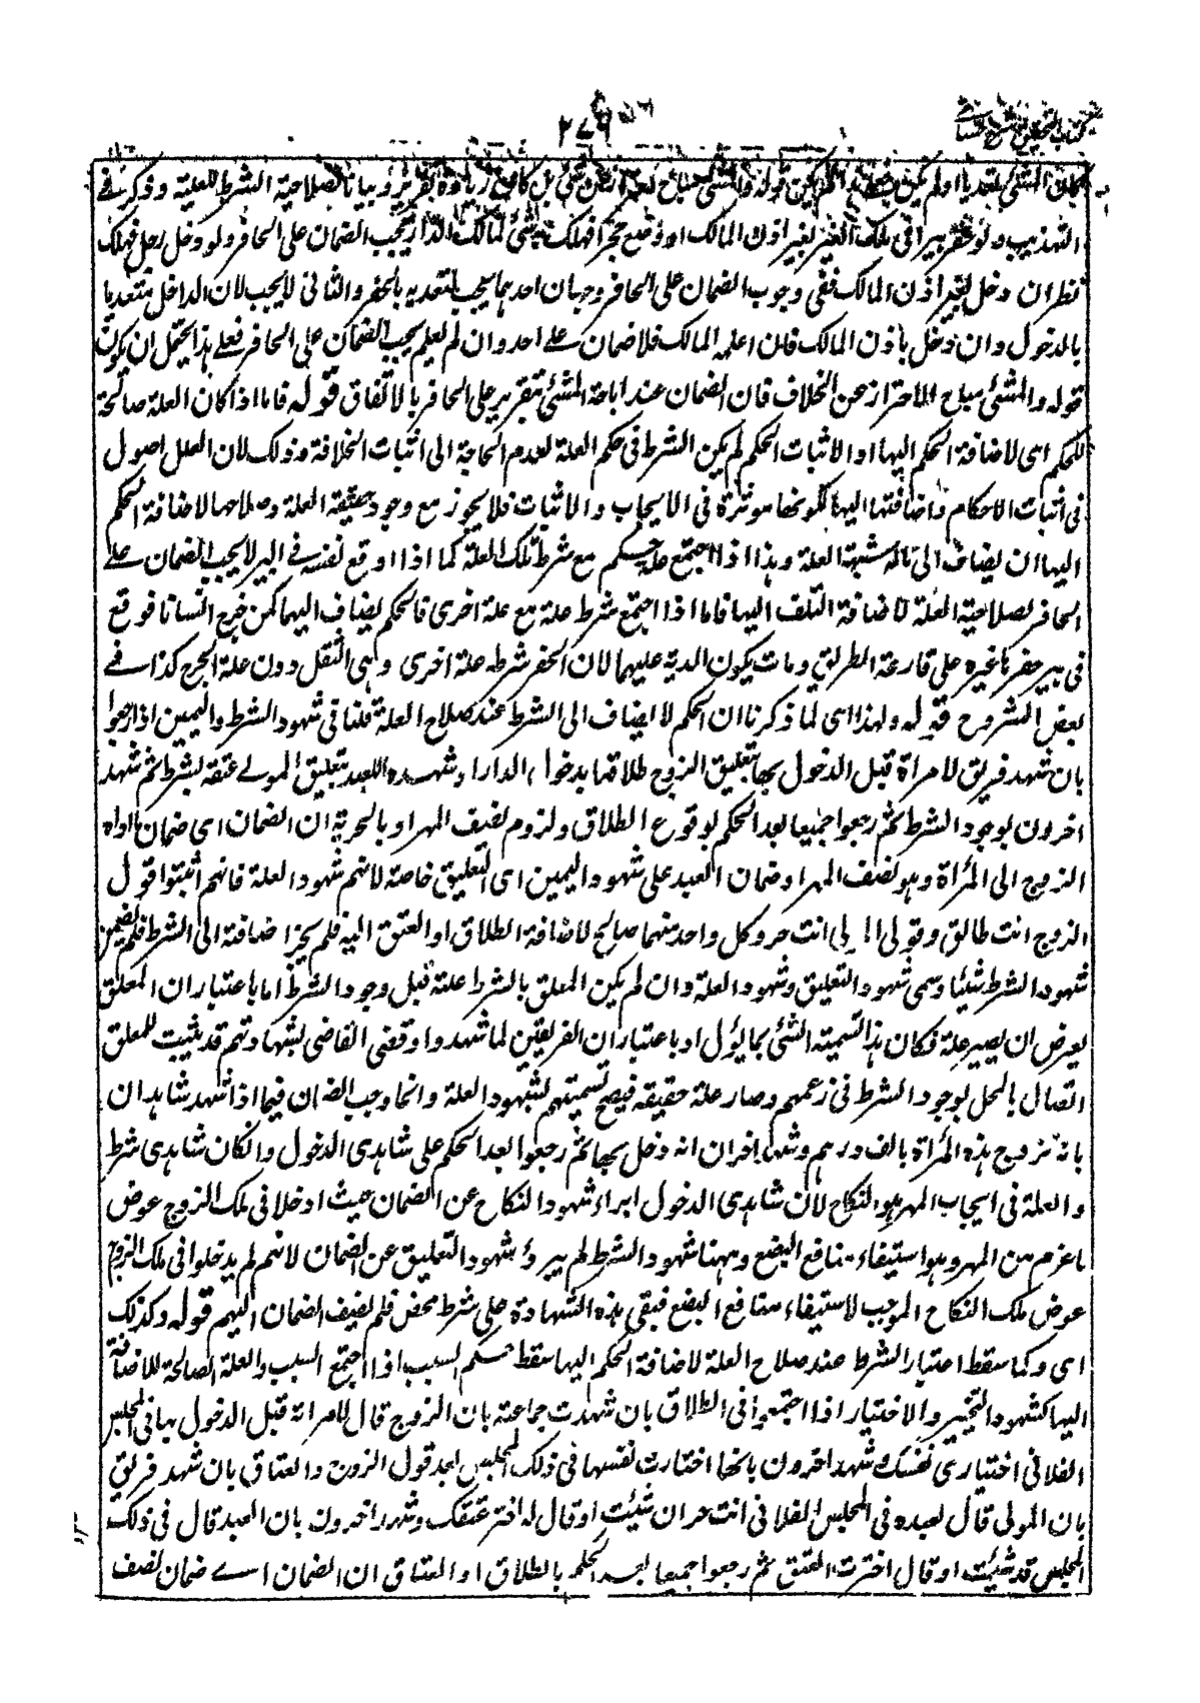 ٢٧٩
كتاب التحقيق شرح الحسامي
التهذيب ولو حفر بيرا في ملك الغير بغير اذن المالك او وضع حجرا فهلك به شئ لمالك الدار يجب الضمان على الحافر ولو دخل رجل فهلك
نظر ان دخل بغير اذن المالك ففي وجوب الضمان على الحافر وجهان احدهما يجب لتعديه بالحفر والثاني لا يجب لان الداخل متعديا
بالدخول وان دخل باذن المالك فان اعلمه المالك فلا ضمان على احد وان لم يعلم يجب الضمان على الحافر فعلى هذا يحتمل ان يكون
قوله والمشئ مباح للاحتراز عن الخلاف فان الضمان عند اباحة المشئ تقرير على الحافر بالاتفاق قوله فاما اذا كان العلة صالحة
للحكم اى لاضافة الحكم اليها او الاثبات الحكم لم يكن الشرط في حكم العلة لعدم الحاجة الى اثبات الخلافة وذلك لان العلل اصول
في اثبات الاحكام واضافتها اليها لكونها موثرة في الايجاب والاثبات فلا يجوز مع وجود حقيقة العلة وصلاحها لاضافة الحكم
اليها ان يضاف الى ماله شبهة العلة وهذا اذا اجتمع علة حكم مع شرط تلك العلة كما اذا اوقع نفسه في البير لا يجب الضمان على
الحافر لصلاحية العلة لاضافة التلف اليها فاما اذا اجتمع شرط علة مع علة اخرى فالحكم يضاف اليها كمن جرح انسانا فوقع
في بير حفرها غيره على قارعة الطريق ومات يكون الدية عليهما لان الحفر شرط علة اخرى وهى الثقل دون علة الجرح كذا في
بعض الشروح قوله ولهذا اى لما ذكرنا ان الحكم لا يضاف الى الشرط عند صلاح العلة قلنا في شهود الشرط واليمين اذا رجعوا
بان شهد فريق لامراة قبل الدخول بها بتعليق الزوج طلاقها بدخول الدار او شهدوا للعبد بتعليق المولى عتقه بشرط ثم شهد
اخرون بوجود الشرط ثم رجعوا جميعا بعد الحكم بوقوع الطلاق ولزوم نصف المهر او بالحرية ان الضمان اى ضمان ما اداه
الزوج الى المرأة وهو نصف المهر او ضمان العبد على شهود اليمين اى التعليق خاصة لانهم شهود العلة فانهم اثبتوا قول
الزوج انت طالق وقول المولى انت حر وكل واحد منهما صالح لاضافة الطلاق او العتق اليه فلم يجز اضافته الى الشرط فلم يضمن
شهود الشرط شيئا وسمى شهود التعليق وشهود العلة وان لم يكن المعلق بالشرط علة قبل وجود الشرط اما باعتبار ان المعلق
يعرض ان يصير علة فكان هذا تسمية الشئ بما يؤل او باعتبار ان الفريقين لما شهدوا وقضى القاضي بشهادتهم قد يثبت للمعلق
اتصال بالمحل لوجود الشرط في زعمهم وصار علة حقيقة فيصح تسميتهم لشهود العلة وانما وجب الضمان فيما اذا شهد شاهدان
بانه تزوج هذه المرأة بالف درهم وشهد اخران انه دخل بها ثم رجعوا بعد الحكم على شاهدى الدخول وان كان شاهدى شرط
والعلة في ايجاب المهر هو النكاح لان شاهدى الدخول ابراء شهود النكاح عن الضمان حيث ادخلا في ملك الزوج عوض
ما غرم من المهر وهو استيفاء منافع البضع وههنا شهود الشرط لم يبرؤا شهود التعليق عن الضمان لانهم لم يدخلوا في ملك الزوج
عوض ملك النكاح الموجب لاستيفاء منافع البضع فبقى هذه الشهادة على شرط محض فلم يضف الضمان اليهم قوله وكذلك
اى وكما سقط اعتبار الشرط عند صلاح العلة لاضافة الحكم اليها سقط حكم السبب اذا اجتمع السبب والعلة الصالحة للاضافة
اليها كشهود التخيير والاختيار اذا اجتمعوا في الطلاق بان شهدت جماعة بان الزوج قال لامراته قبل الدخول بها في المجلس
الفلاني اختيارى نفسك وشهد اخرون بانها اختارت نفسها في ذلك المجلس بعد قول الزوج والعتاق بان شهد فريق
بان المولى قال لعبده في المجلس الفلاني انت حر ان شئت او قال له اختر عتقك وشهد اخرون بان العبد قال في ذلك
المجلس قد شئت او قال اخترت العتق ثم رجعوا جميعا بعد الحكم بالطلاق او العتاق ان الضمان اى ضمان نصف